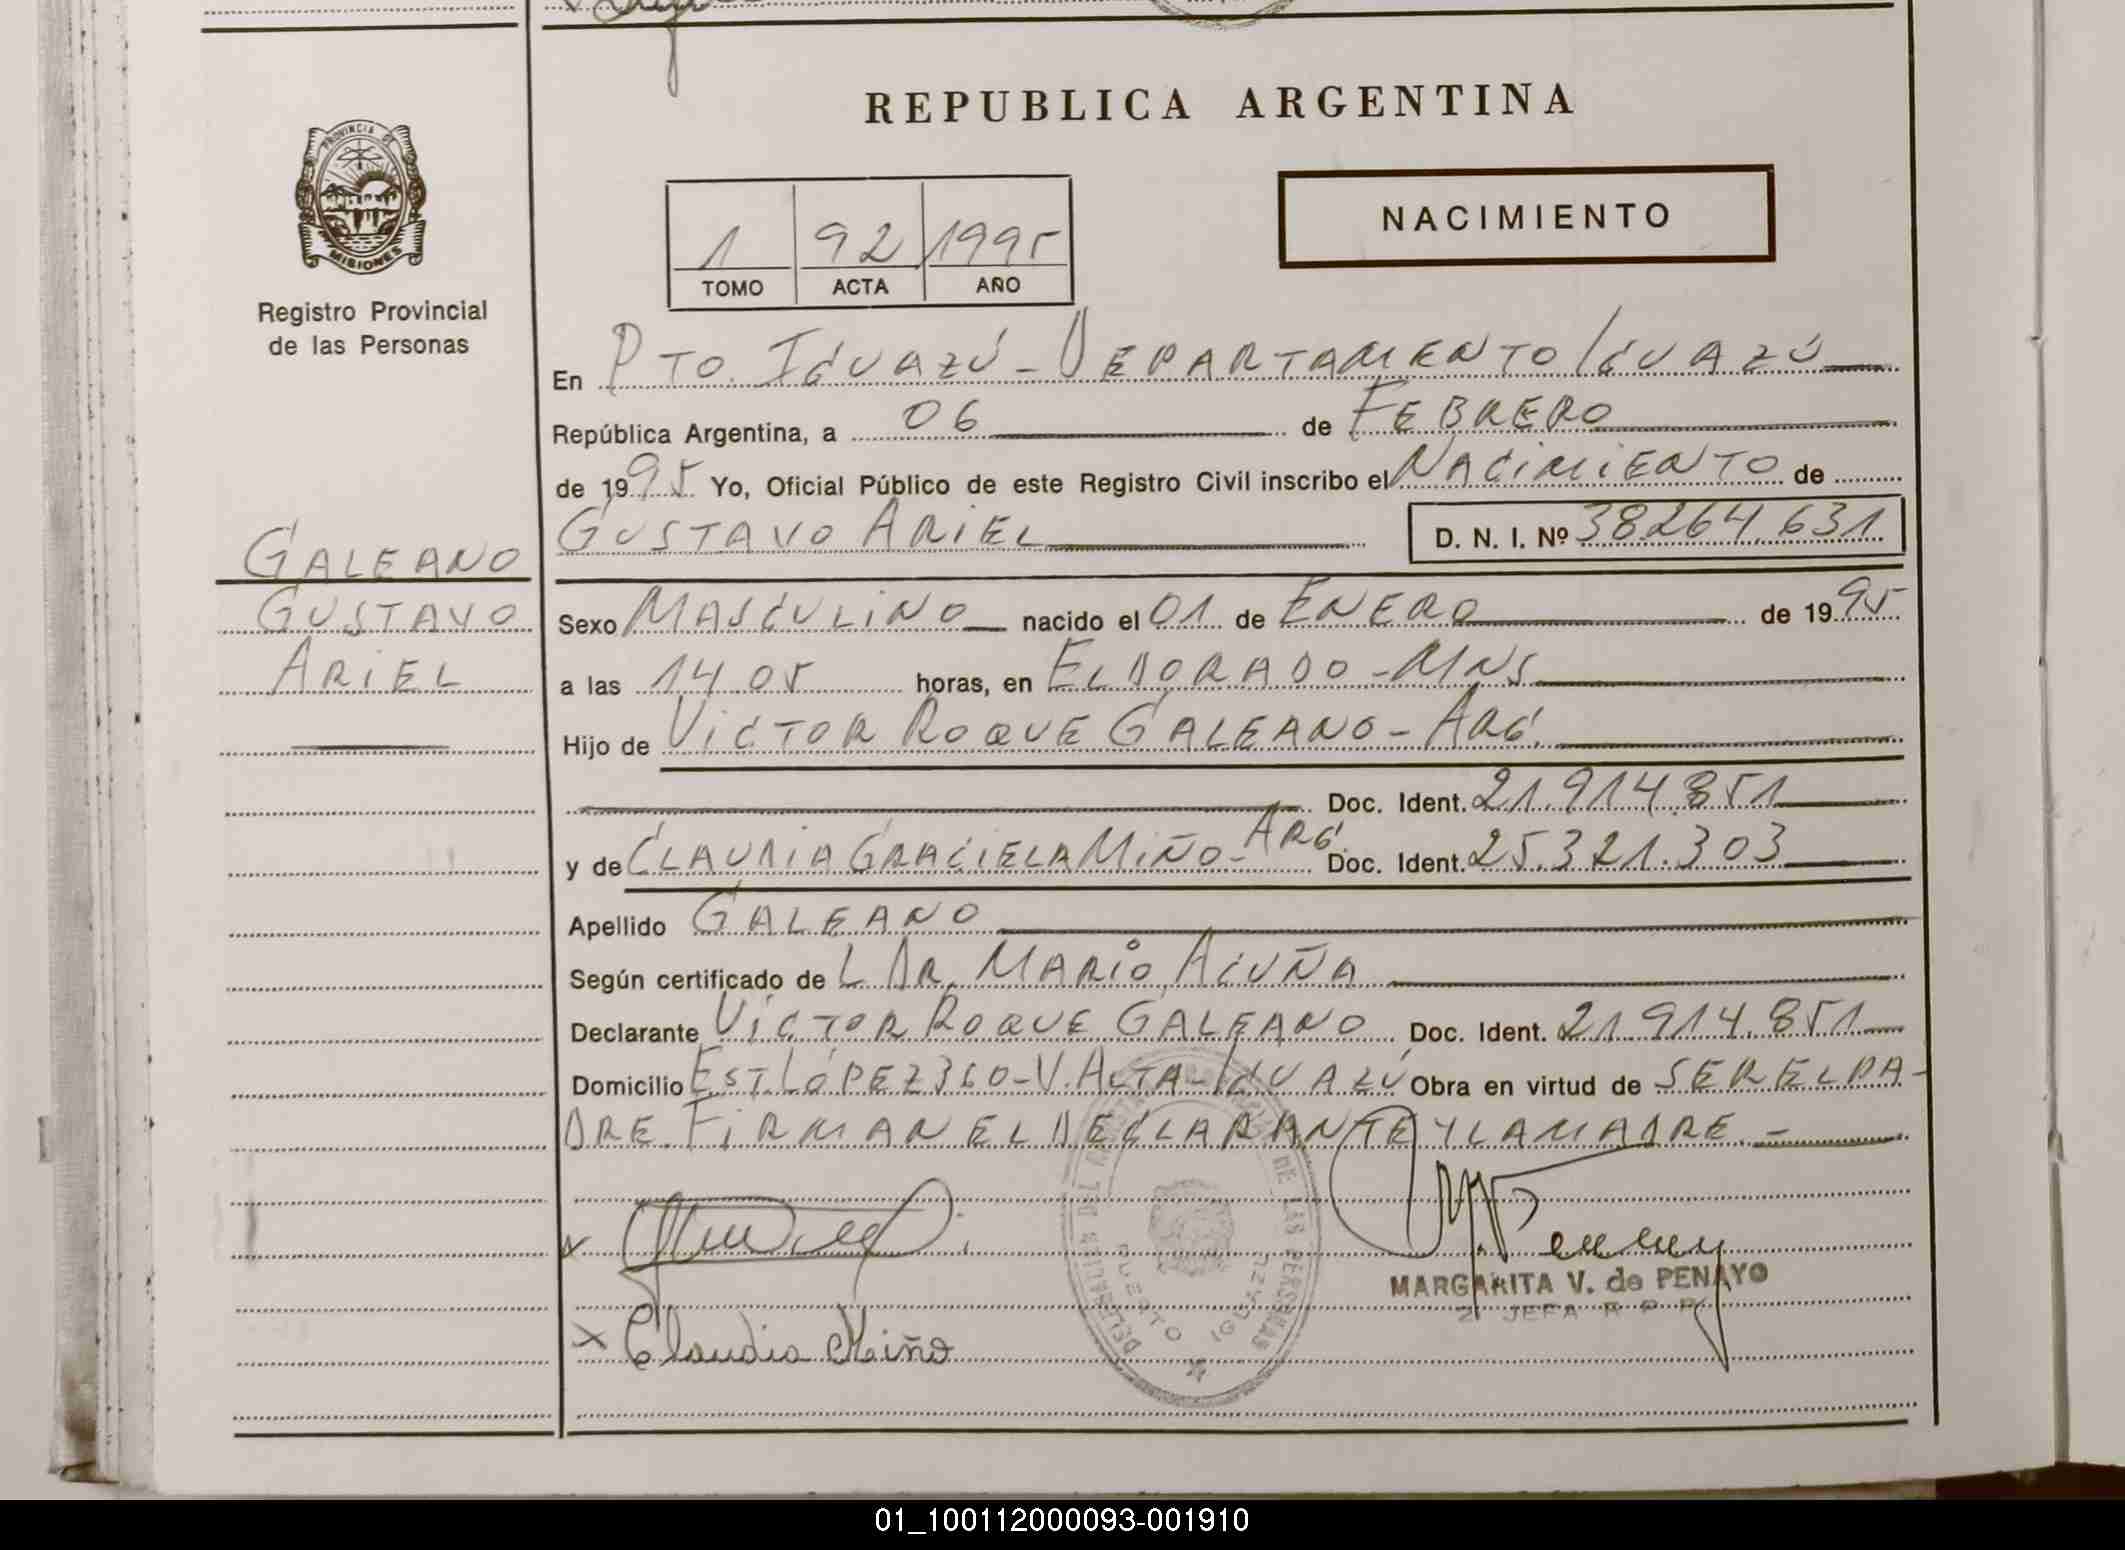 REPUBLICA ARGENTINA
PROVINCIA DE
MISIONES
Registro Provincial
de las Personas
NACIMIENTO
1 92 1995
TOMO ACTA AÑO
En PTO. IGUAZÚ - DEPARTAMENTO IGUAZÚ
República Argentina, a 06 de FEBRERO
de 1995 Yo, Oficial Público de este Registro Civil inscribo el NACIMIENTO de
GUSTAVO ARIEL D. N. I. Nº 38264.631
GALEANO
GUSTAVO
ARIEL
Sexo MASCULINO nacido el 01 de ENERO de 1995
a las 14 05 horas, en ELDORADO - MNS
Hijo de VICTOR ROQUE GALEANO - ARG.
Doc. Ident. 21.914.851
y de CLAUDIA GRACIELA MIÑO - ARG. Doc. Ident. 25.321.303
Apellido GALEANO
Según certificado de L DR. MARIO ACUÑA
Declarante VICTOR ROQUE GALEANO Doc. Ident. 21.914.851
Domicilio EST. LÓPEZ 360 - V. ALTA - IGUAZÚ Obra en virtud de SER EL PA-
DRE. FIRMAN EL DECLARANTE Y LA MADRE. -
DE LAS PERSONAS
PUERTO IGUAZU
MARGARITA V. de PENAYO
2º JEFA R P P
x
x Claudia Miño
01_100112000093-001910